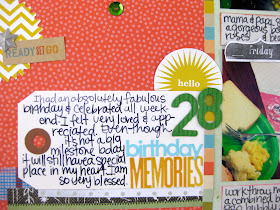 READY SET GO
hello
28
I had an absolutely fabulous
birthday & celebrated all week-
end. I felt very loved & app-
reciated. Even though
it's not a big
milestone bday
it will still have a special
place in my heart. I am
so very blessed.
birthday
MEMORIES
mama & papa
a gorgeous bo
roses & bea
Friday
workthru
a combined